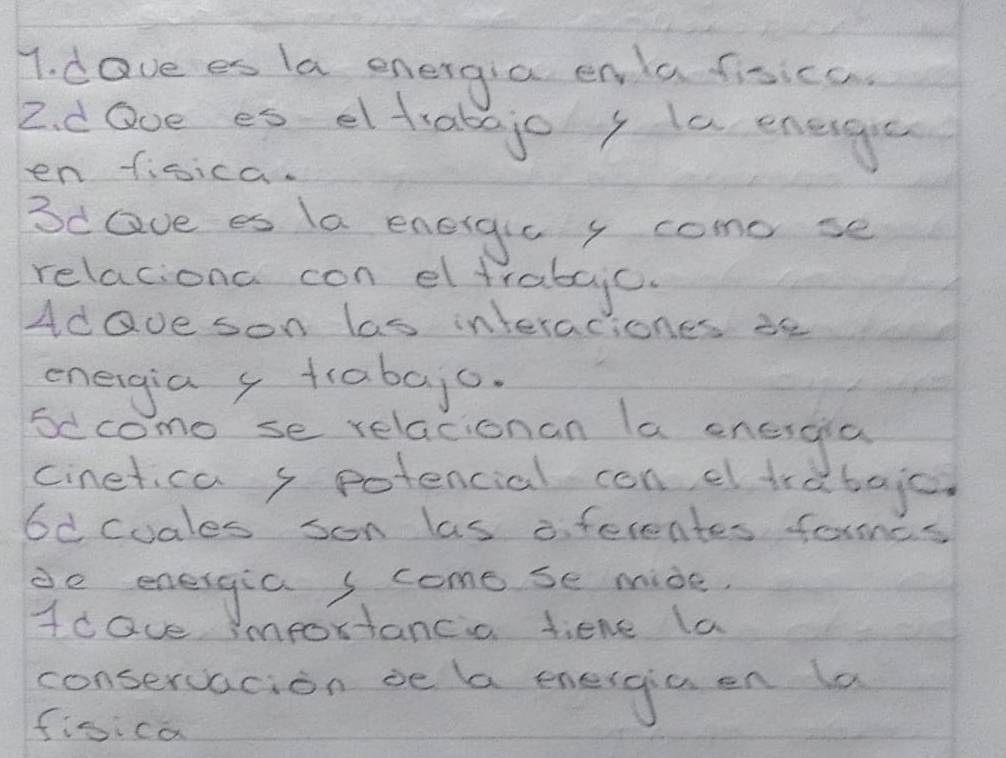 1.¿Que es la energia en la fisica.
2.¿Que es el trabajo y la energia
en fisica.
3¿Que es la energia y como se
relaciona con el trabajo.
4¿Que son las interaciones de
energia y trabajo.
5¿como se relacionan la energia
cinetica y potencial con el trabajo.
6¿cuales son las diferentes formas
de energia y como se mide.
7¿Que importancia tiene la
conservación de la energia en la
fisica